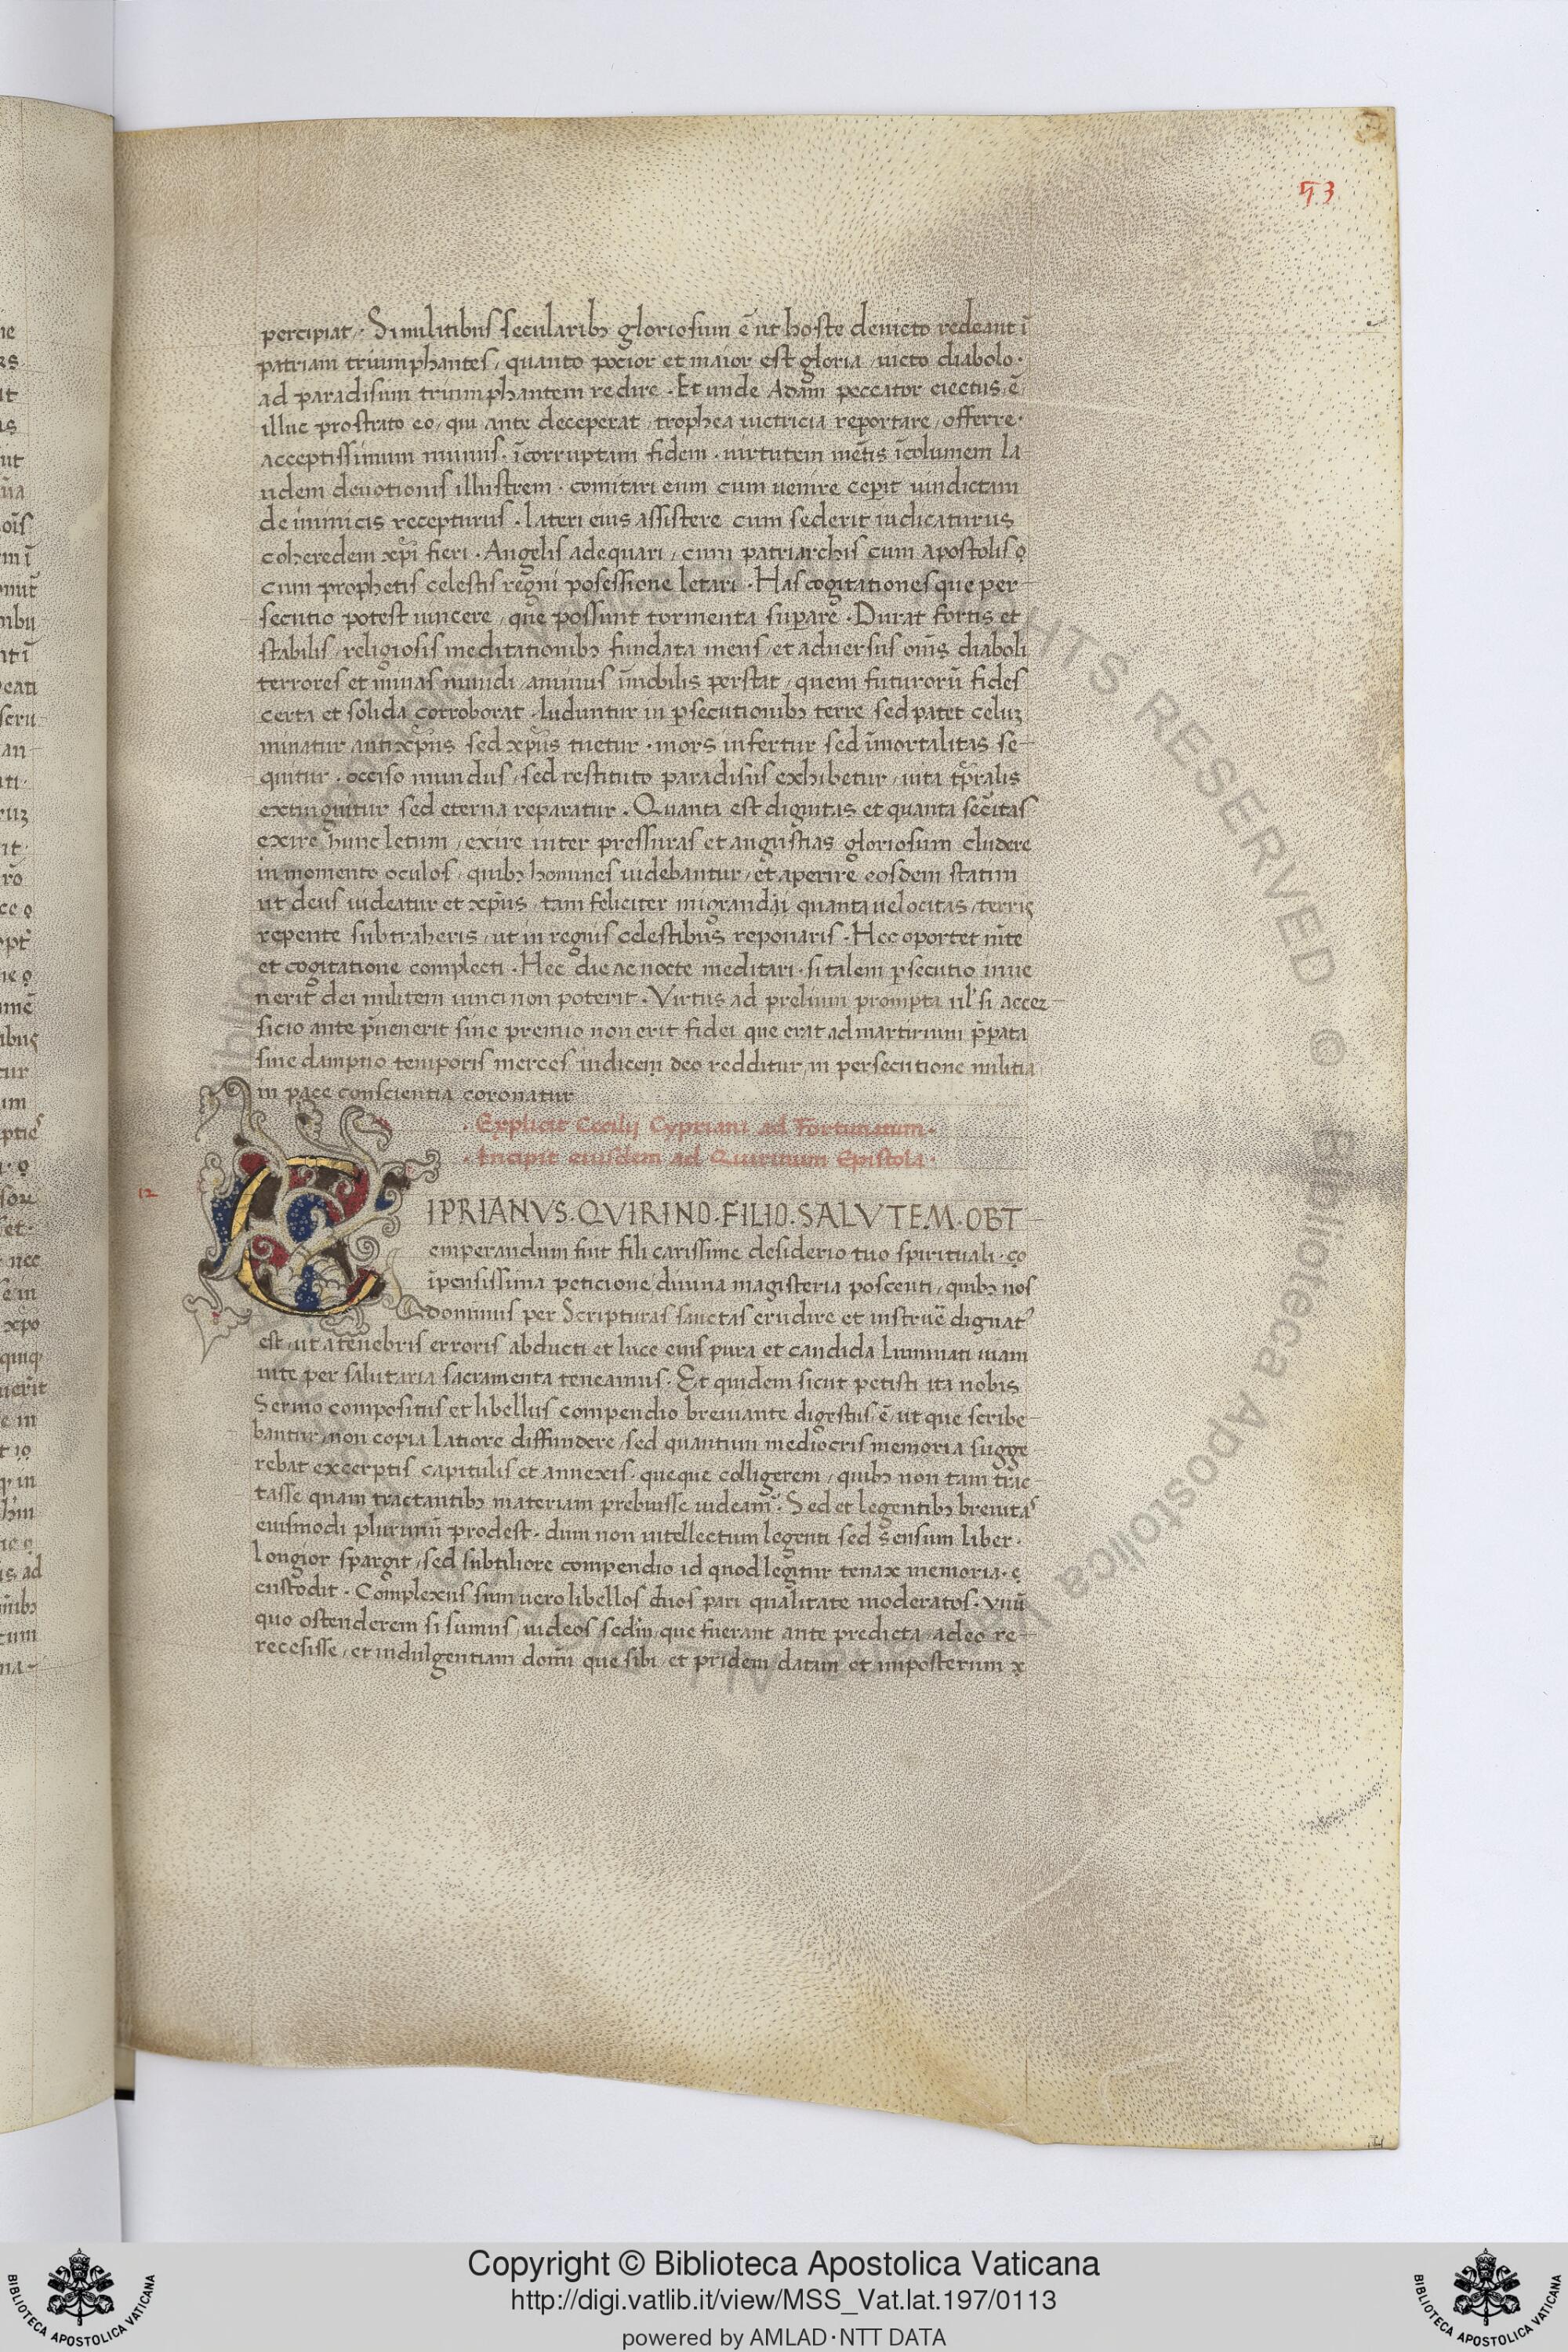 53
percipiat · Si militibus secularibꝫ gloriosum ē ut hoste deuicto redeant ī
patriam triumphantes, quanto pocior et maior est gloria uicto diabolo ·
ad paradisum triumphantem redire · Et unde Adam peccator eiectus ē
illuc prostrato eo, qui ante deceperat, trophea uictricia reportare, offerre ·
acceptissimum munus · īcorruptam fidem · uirtutem mētis īcolumem la
udem deuotionis illustrem · comitari eum cum uenire ceperit uindictam
de inimicis recepturus · lateri eius assistere cum sederit iudicaturus
coheredem xp̄i fieri · Angelis adequari, cum patriarchis cum apostolis
cum prophetis celestis regni posessione letari · Has cogitationes que per-
secutio potest uincere, que possunt tormenta suꝑare · Durat fortis et
stabilis, religiosis meditationibꝫ fundata mens, et aduersus om̄is diaboli
terrores et minas mundi, animus īmobilis perstat, quem futurorū fides
certa et solida corroborat · luduntur in ꝑsecutionibꝫ terre sed patet celuꝫ
minatur antixp̄us sed xp̄us tuetur · mors infertur sed īmortalitas se-
quitur · occiso mundus, sed restituto paradisus exhibetur, uita tp̄ralis
extinguitur sed eterna reparatur · Quanta est dignitas et quanta sec̄itas
exire hunc letum, exire inter pressuras et angustias gloriosum cludere
in momento oculos, quibꝫ homines uidebantur, et aperire eosdem statim
ut deus uideatur et xp̄us, tam feliciter migrandi quanta uelocitas, terris
repente subtraheris, ut in regnis celestibus reponaris · Hec oportet mēte
et cogitatione complecti · Hec die ac nocte meditari · si talem ꝑsecutio inue
nerit dei militem uinci non poterit · Virtus ad prelium prompta ul' si accer-
sicio ante p̄uenerit sine premio non erit fidei que erat ad martirium p̄ꝑata
sine dampno temporis merces iudicem deo redditur, in persecutione militia
in pace conscientia coronatur
· Explicit Cecilij Cypriani ad Fortunatum ·
· Incipit eiusdem ad Quirinum Epistola ·
12
CIPRIANVS · QVIRINO · FILIO · SALVTEM · OBT-
emperandum fuit fili carissime desiderio tuo spirituali ·
īpensissima peticione diuina magisteria poscenti, quibꝫ nos
dominus per Scripturas sanctas erudire et instruē dignat'
est, ut a tenebris erroris abducti et luce eius pura et candida luminati uiam
uite per salutaria sacramenta teneamus · Et quidem sicut petisti ita nobis
Sermo compositus et libellus compendio breuiante digestus ē, ut que scribe-
bantur, non copia latiore diffundere, sed quantum mediocris memoria sugge-
rebat excerptis capitulis et annexis · queque colligerem, quibꝫ non tam trac-
tasse quam tractantibꝫ materiam prebuisse uideam' · Sed et legentibꝫ breuitas
eiusmodi plurimū prodest · dum non intellectum legenti sed sensum liber ·
longior spargit, sed subtiliore compendio id quod legitur tenax memoria ·
custodit · Complexus sum uero libellos duos pari qualitate moderatos · vnū
quo ostenderem si sumus, iudeos sed'm que fuerant ante predicta adeo re-
recesisse, et indulgentiam dom̄i que sibi et pridem datum et imposterum
Copyright © Biblioteca Apostolica Vaticana
http://digi.vatlib.it/view/MSS_Vat.lat.197/0113
powered by AMLAD·NTT DATA
BIBLIOTECA APOSTOLICA VATICANA
BIBLIOTECA APOSTOLICA VATICANA